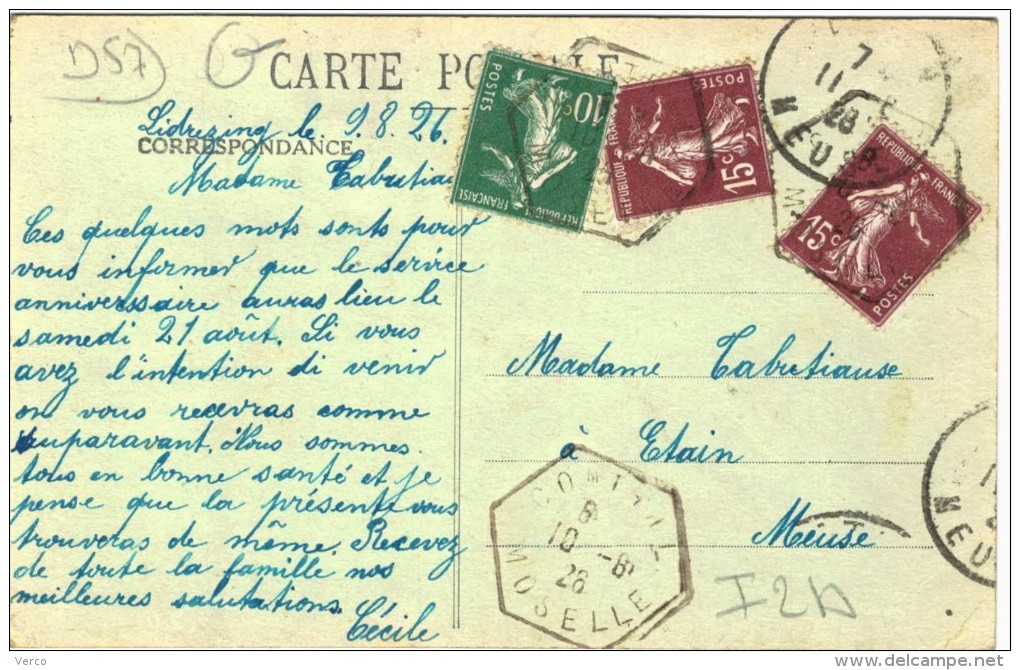 D57
CARTE
Lidrezing le 9.8.26.
CORRESPONDANCE
Madame Tabutiau
Ces quelques mots sonts pour
vous informer que le service
anniverssaire auras lieu le
samedi 21 août. Si vous
avez l'intention di venir
on vous recevras comme
auparavant. Nous sommes
tous en bonne santé et je
pense que la présente vous
trouveras de même. Recevez
de toute la famille nos
meilleures salutations.
Cécile
POSTES
10c
REPUBLIQUE FRANÇAISE
POSTES
15c
REPUBLIQUE FRANC
REPUBLIQUE FRANC
15c
POSTES
7
11
MEUSE
Madame Tabutiause
à Etain
Meuse
8
10 -8
26
MOSELLE
MEUS
I2D
Verco
www.delcampe.net